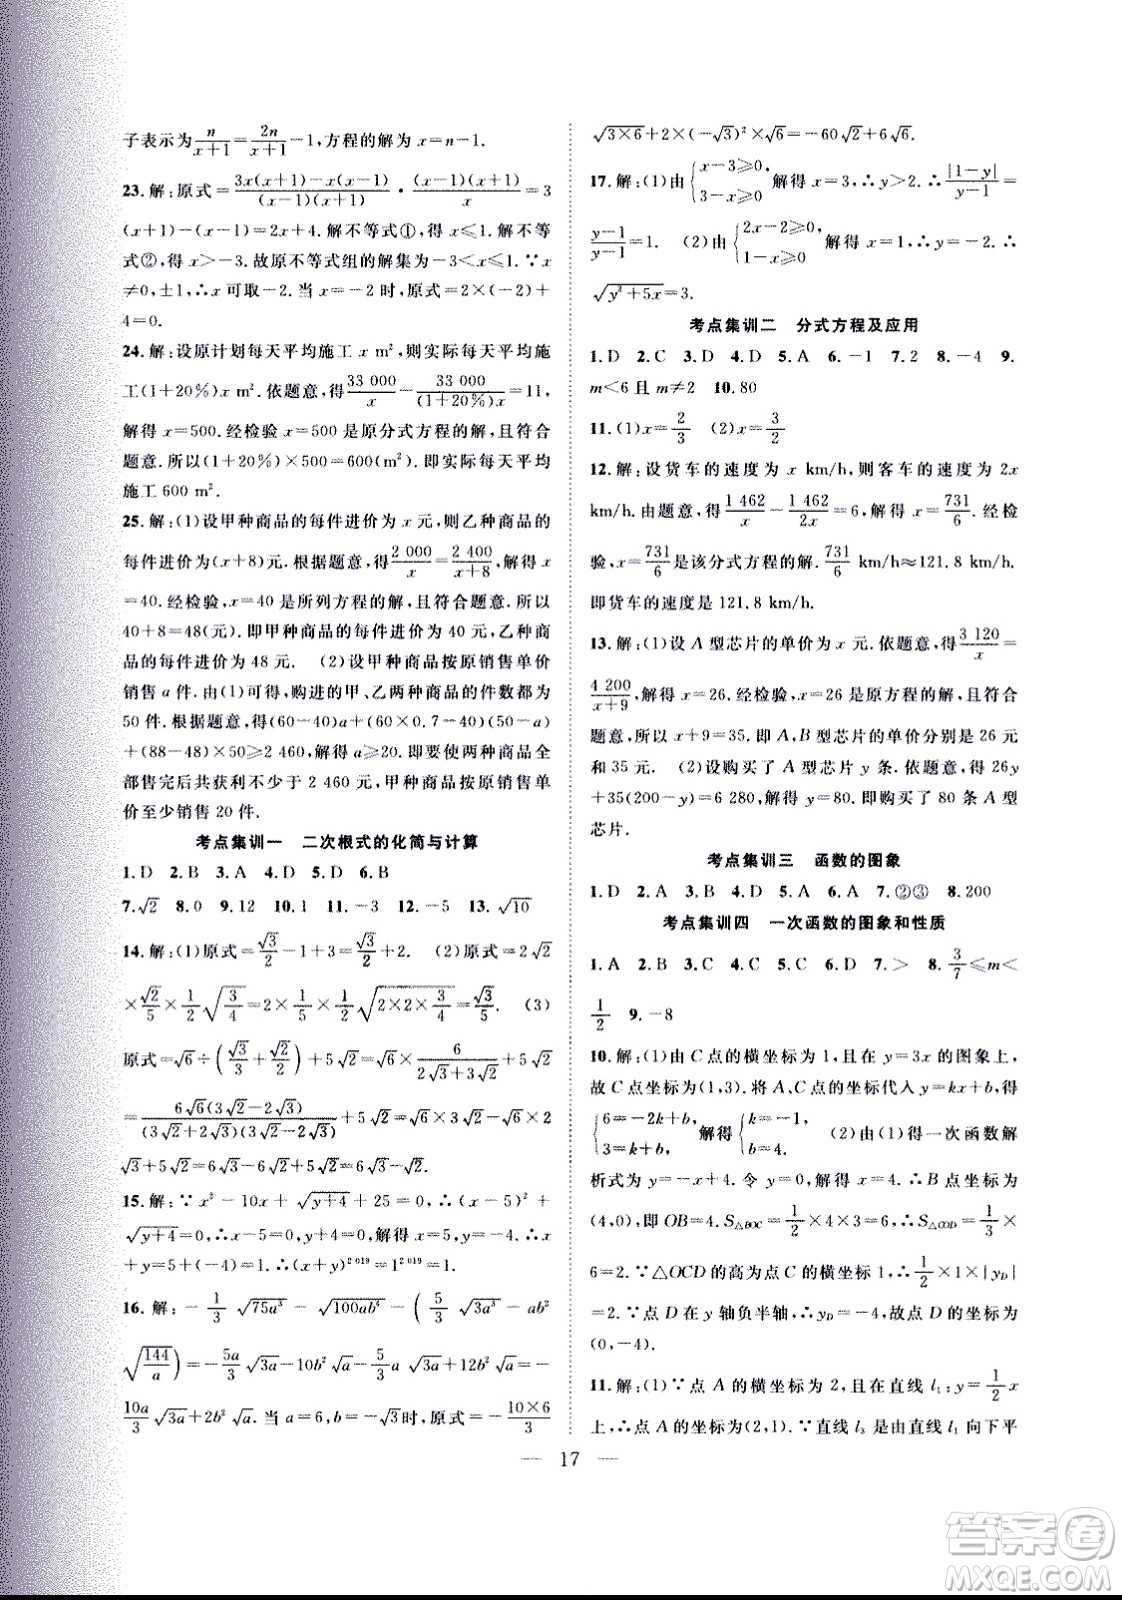 子表示为 n/(x+1)=2n/(x+1)−1,方程的解为 x=n−1.
23.解:原式=[3x(x+1)−x(x−1)]/[(x−1)(x+1)]·[(x−1)(x+1)]/x=3
(x+1)−(x−1)=2x+4.解不等式①,得 x≤1.解不等
式②,得 x>−3.故原不等式组的解集为−3<x≤1.∵x
≠0,±1,∴x 可取−2.当 x=−2时,原式=2×(−2)+
4=0.
24.解:设原计划每天平均施工 x m²,则实际每天平均施
工(1+20%)x m².依题意,得 33 000/x−33 000/[(1+20%)x]=11,
解得 x=500.经检验 x=500 是原分式方程的解,且符合
题意.所以(1+20%)×500=600(m²).即实际每天平均
施工 600 m².
25.解:(1)设甲种商品的每件进价为 x 元,则乙种商品的
每件进价为(x+8)元.根据题意,得 2 000/x=2 400/(x+8),解得 x
=40.经检验,x=40 是所列方程的解,且符合题意.所以
40+8=48(元).即甲种商品的每件进价为 40 元,乙种商
品的每件进价为 48 元. (2)设甲种商品按原销售单价
销售 a 件.由(1)可得,购进的甲、乙两种商品的件数都为
50 件.根据题意,得(60−40)a+(60×0.7−40)(50−a)
+(88−48)×50≥2 460,解得 a≥20.即要使两种商品全
部售完后共获利不少于 2 460 元,甲种商品按原销售单
价至少销售 20 件.
考点集训一 二次根式的化简与计算
1.D 2.B 3.A 4.D 5.D 6.B
7.√2 8.0 9.12 10.1 11.−3 12.−5 13.√10
14.解:(1)原式=√3/2−1+√3/2+2. (2)原式=2√2
×√2/5×1/2√(3/4)=2×1/5×1/2√(2×2×3/4)=√3/5. (3)
原式=√6÷(√3/3+√2/2)+5√2=√6×6/(2√3+3√2)+5√2
=6√6(3√2−2√3)/[(3√2+2√3)(3√2−2√3)]+5√2=√6×3√2−√6×2
√3+5√2=6√3−6√2+5√2=6√3−√2.
15.解:∵x²−10x+√(y+4)+25=0,∴(x−5)²+
√(y+4)=0,∴x−5=0,y+4=0,解得 x=5,y=−4.∴
x+y=5+(−4)=1.∴(x+y)²⁰¹⁹=1²⁰¹⁹=1.
16.解:−1/3√(75a³)−√(100ab⁴)−(5/3√(3a³)−ab²
√(144/a))=−5a/3√(3a)−10b²√a−5/3a√(3a)+12b²√a=−
10a/3√(3a)+2b²√a.当 a=6,b=−√3时,原式=−(10×6)/3
√(3×6)+2×(−√3)²×√6=−60√2+6√6.
17.解:(1)由{x−3≥0, 3−x≥0,解得 x=3,∴y>2.∴|1−y|/(y−1)=
(y−1)/(y−1)=1. (2)由{2x−2≥0, 1−x≥0 解得 x=1,∴y=−2.∴
√(y²+5x)=3.
考点集训二 分式方程及应用
1.D 2.C 3.D 4.D 5.A 6.−1 7.2 8.−4 9.
m<6 且 m≠2 10.80
11.(1)x=2/3 (2)x=3/2
12.解:设货车的速度为 x km/h,则客车的速度为 2x
km/h.由题意,得 1 462/x−1 462/2x=6,解得 x=731/6.经检
验,x=731/6是该分式方程的解,731/6 km/h≈121.8 km/h.
即货车的速度是 121.8 km/h.
13.解:(1)设 A 型芯片的单价为 x 元.依题意,得 3 120/x=
4 200/(x+9),解得 x=26.经检验,x=26 是原方程的解,且符合
题意,所以 x+9=35.即 A,B 型芯片的单价分别是 26 元
和 35 元. (2)设购买了 A 型芯片 y 条.依题意,得 26y
+35(200−y)=6 280,解得 y=80.即购买了 80 条 A 型
芯片.
考点集训三 函数的图象
1.D 2.A 3.B 4.D 5.A 6.A 7.②③ 8.200
考点集训四 一次函数的图象和性质
1.A 2.B 3.C 4.A 5.D 6.D 7.> 8.3/7≤m<
1/2 9.−8
10.解:(1)由 C 点的横坐标为 1,且在 y=3x 的图象上,
故 C 点坐标为(1,3).将 A、C 点的坐标代入 y=kx+b,得
{6=−2k+b, 3=k+b, 解得{k=−1, b=4. (2)由(1)得一次函数解
析式为 y=−x+4.令 y=0,解得 x=4.故此函数与 B 点坐标为
(4,0),即 OB=4.S△BOC=1/2×4×3=6,S△COD=1/3×
6=2.∵△OCD 的高为点 C 的横坐标,∴1/2×1×|yD|
=2.∵点 D 在 y 轴负半轴,∴yD=−4,故点 D 的坐标为
(0,−4).
11.解:(1)∵点 A 的横坐标为 2,且在直线 l₁:y=1/2x
上,∴点 A 的坐标为(2,1).∵直线 l₃ 是由直线 l₁ 向下平
— 17 —
答案卷
MXQE.COM